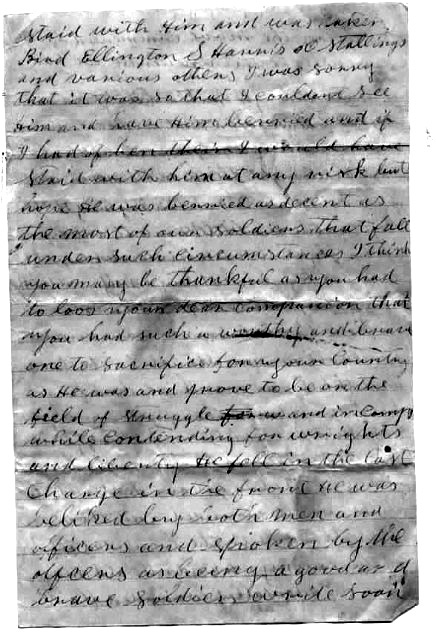 staid with Him and was taken
Bird Ellington S Hannis ol Stallings
and various others, I was sorry
that it was so that I couldend see
Him and have Him berried and if
I had of ben their I would have
staid with him at any risk but
hope He was berried as decent as
the most of our Soldiers that fall
under such circumstances I think
you many be thankful as you had
to loos your dear companion that
you had such a worthy and brave
one to sacrifice for your Country
as He was and prove to be on the
field of struggle and in camp
while contending for wrights
and liberty He fell in the last
Charge in the front He was
beliked by both men and
officers and spoken by the
offcers as being a good and
brave Soldier write soon